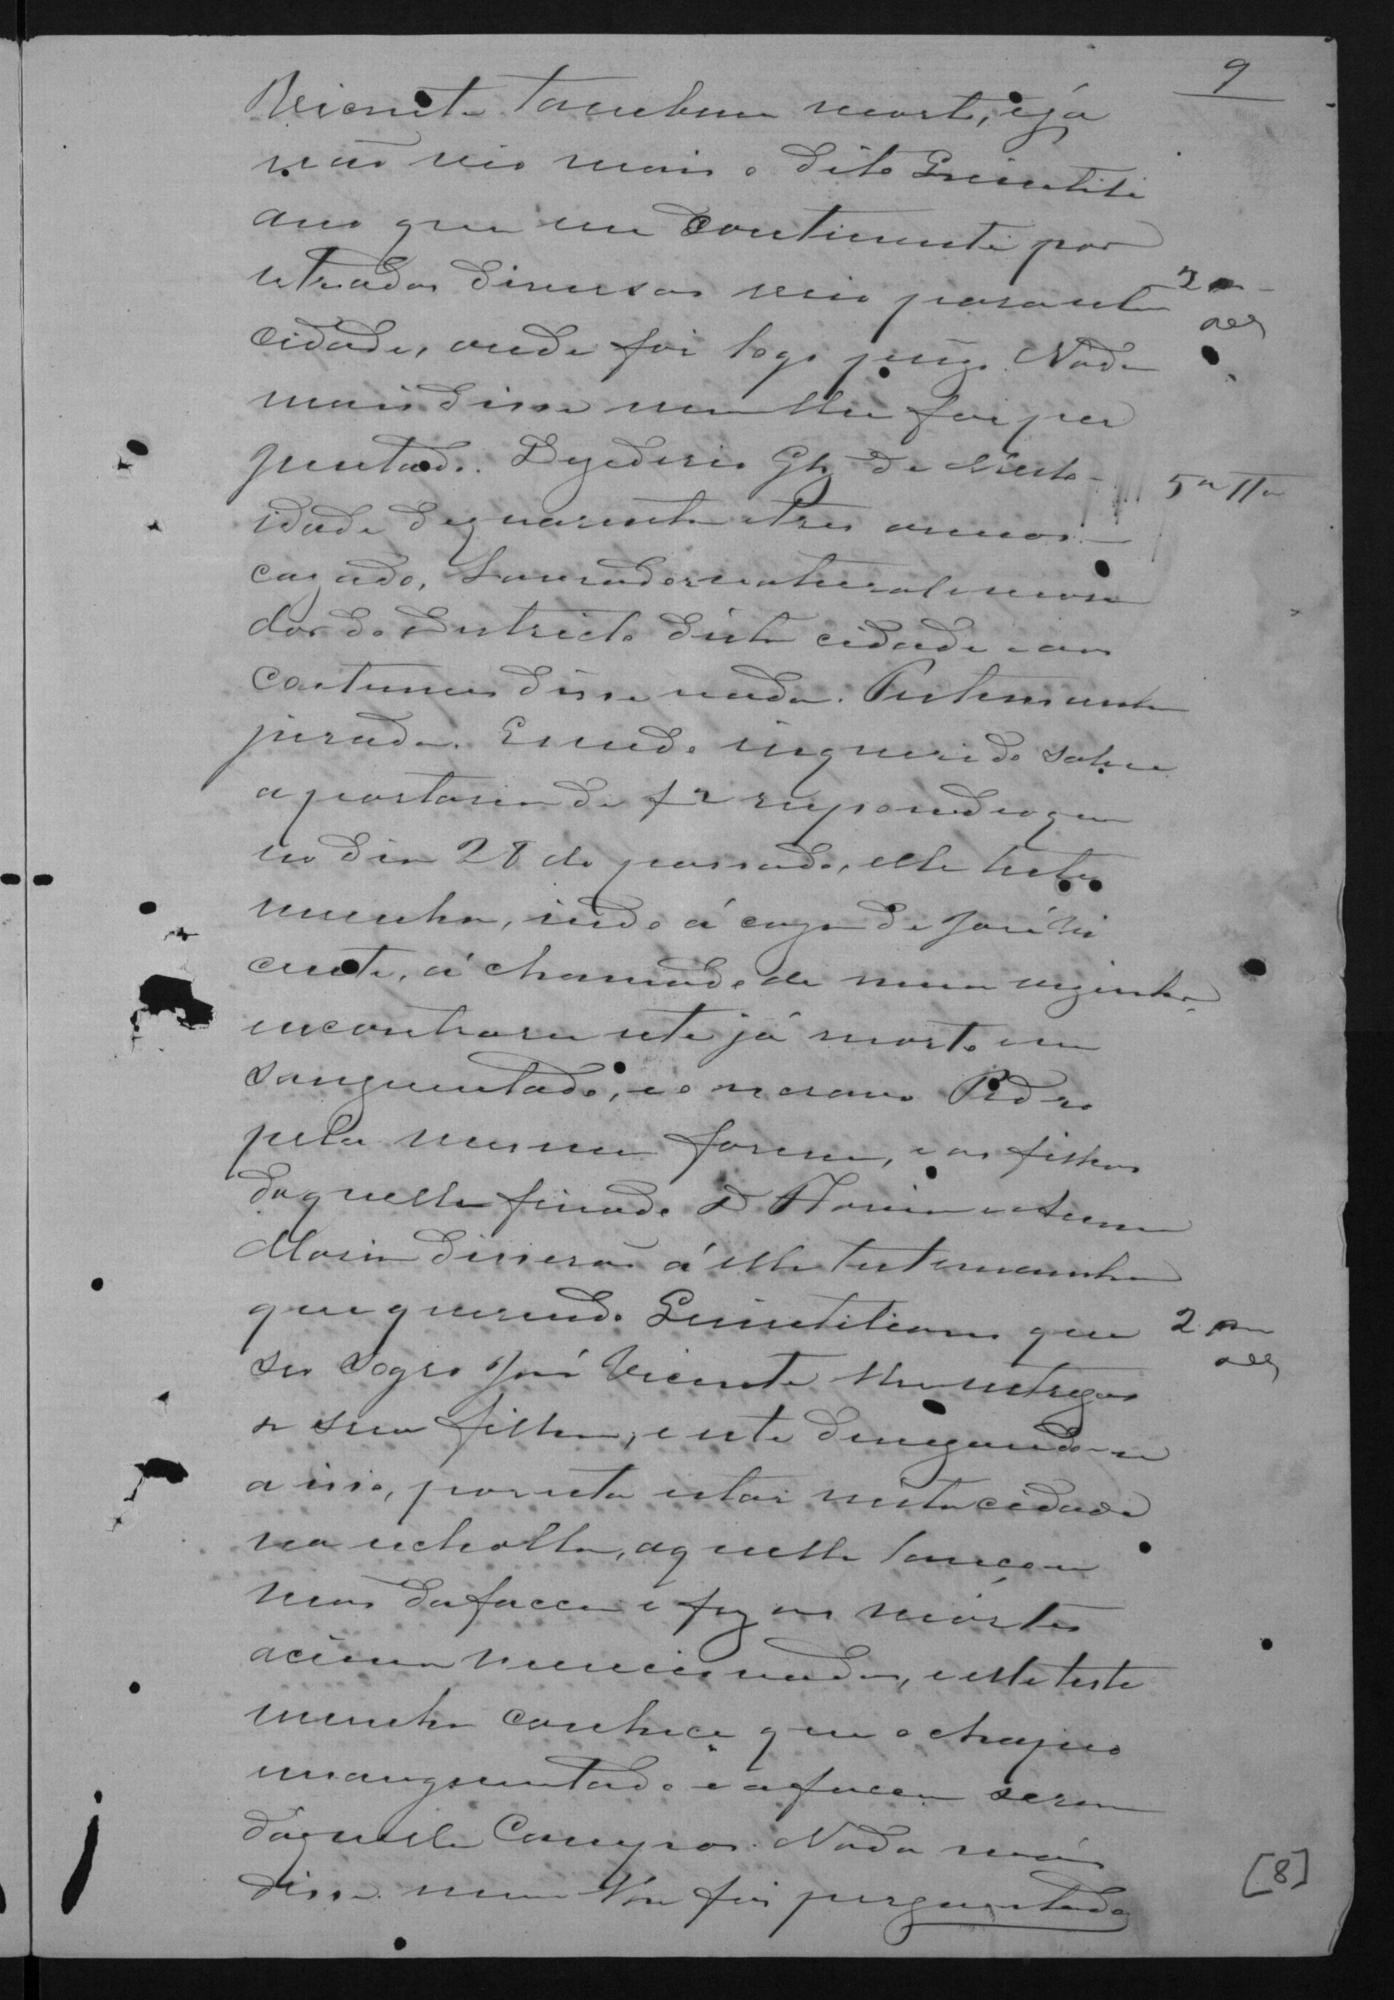 9
Vicente tambem morto, e já
não vio mais o dito Quintili
ano que em continente por
estradas diversas veio para esta
cidade, onde foi logo prezo. Nada
mais disse nem lhe foi per
guntado. Dezederio Glz de
idade de quarenta e tres annos
cazado, Lavrador natural e mora
dor do districto desta cidade e aos
costumes disse nada. Testemunha
jurada. E sendo inquerido sobre
a portaria de f 2 respondeo que
no dia 28 do passado, elle teste
munha, indo á caza de José Vi
cente, á chamado de uma vizinha
encontrara este já morto en
sanguentado, e o escravo Pedro
pela mesma forma, e as filhas
daquelle finado D Maria e Anna
Maria disserão á elle testemunha
que querendo Quintiliano que
seo sogro José Vicente lhe entregas
se sua filha, e este denegando-se
a isso, por esta estar nesta cidade
na escholla, aquelle lançou
mão da facca e fez as mórtes
acima mencionadas, e elle teste
munha conhece que o chapeo
ensanguentado e a facca serem
daquelle Campos. Nada mais
disse nem lhe foi perguntado
2
5ª Tª
2
[8]